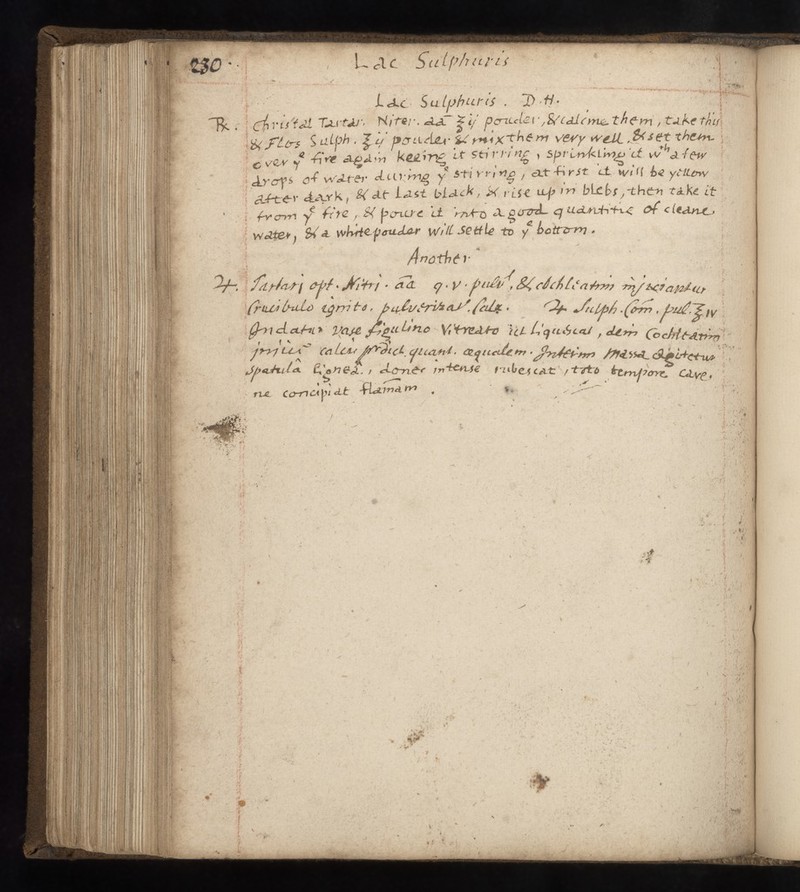 230
Lac Sulphuris
Lac Sulphuris. D. H.
℞. Christal Tartar. Niter. aā ℥ij pouder, & calcine them, take this
& Flos Sulph. ℥ij pouder & mix them very well, & set them
over yᵉ fire again keeing it stirring, sprinkling it wᵗʰ a few
drops of water during yᵉ stirring, at first it will be yellow
after dark, & at last black, & rise up in blebs, then take it
from yᵉ fire, & poure it into a good quantitie of cleane
water, & a white pouder will settle to yᵉ bottom.
Another
♃. Tartari opt. Nitri. aā q.v. pulv, & cochleatim injiciantur
Crucibulo ignito. pulverizat. Calx. ♃ Sulph. Com. pul. ℥iv
Indatur vase figulino vitreato ut liquescat, dein Cochleatim
injice calcis prdict. quant. æqualem. Interim massa agitetur
spatulâ ligneâ, donec intense rubescat, toto tempore cave,
ne concipiat flamam.